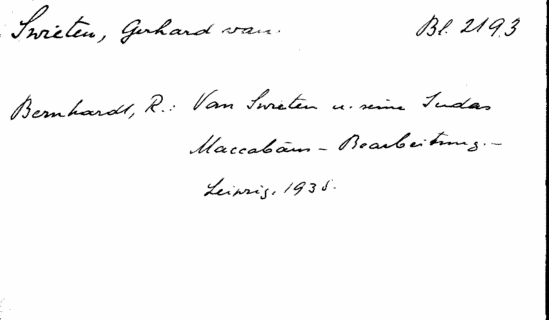 Swieten, Gerhard van. Bl. 2193
Bernhardt, R.: Van Swieten u. seine Judas
Maccabäus - Bearbeitung. -
Leipzig. 1935.